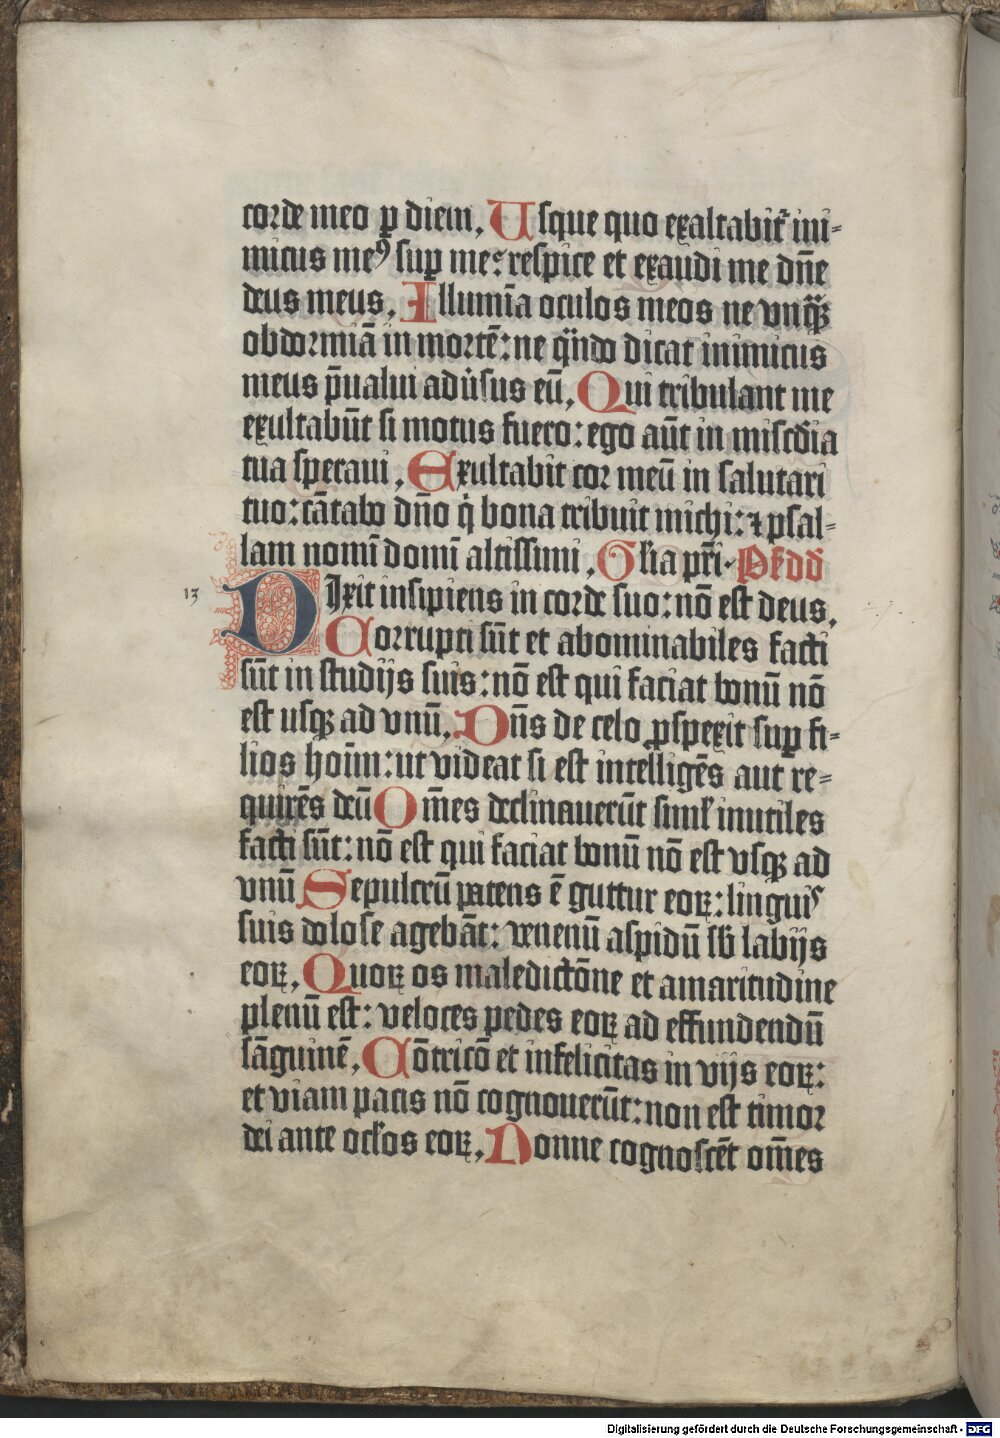 corde meo ꝑ diem, Usque quo exaltabit᷑ ini-
micus meꝰ suꝑ me: respice et exaudi me dn̄e
deus meus, Illumīa oculos meos ne vnqᷓꝫ
obdormiā in mortē: ne qn̄do dicat inimicus
meus p̄ualui adùsus eū, Qui tribulant me
exultabūt si motus fuero: ego aūt in misc̄dia
tua speraui, Exultabit cor meū in salutari
tuo: cātabo dn̄o qͥ bona tribuit michi: ⁊ psal-
lam nomī domī altissimi, Gl̄ia pr̄i. Ps̄ dd
13 DIxit insipiens in corde suo: nō est deus,
Corrupti sūt et abominabiles facti
sūt in studijs suis: nō est qui faciat bonū nō
est usqꝫ ad vnū, Dn̄s de celo ꝓspexit suꝑ fi-
lios hoīm: ut videat si est intelligēs aut re-
quirēs deū Om̄es declinauerūt simĺ inutiles
facti sūt: nō est qui faciat bonū nō est vsqꝫ ad
vnū Sepulcrū patens ē guttur eoꝝ: linguiˢ
suis dolose agebāt: venenū aspidū sb̄ labijs
eoꝝ, Quoꝝ os maledictōne et amaritudine
plenū est: veloces pedes eoꝝ ad effundendū
sāguinē, Cōtricō et infelicitas in vijs eoꝝ:
et viam pacis nō cognouerūt: non est timor
dei ante ocĺos eoꝝ, Nonne cognoscēt om̄es
Digitalisierung gefördert durch die Deutsche Forschungsgemeinschaft - DFG